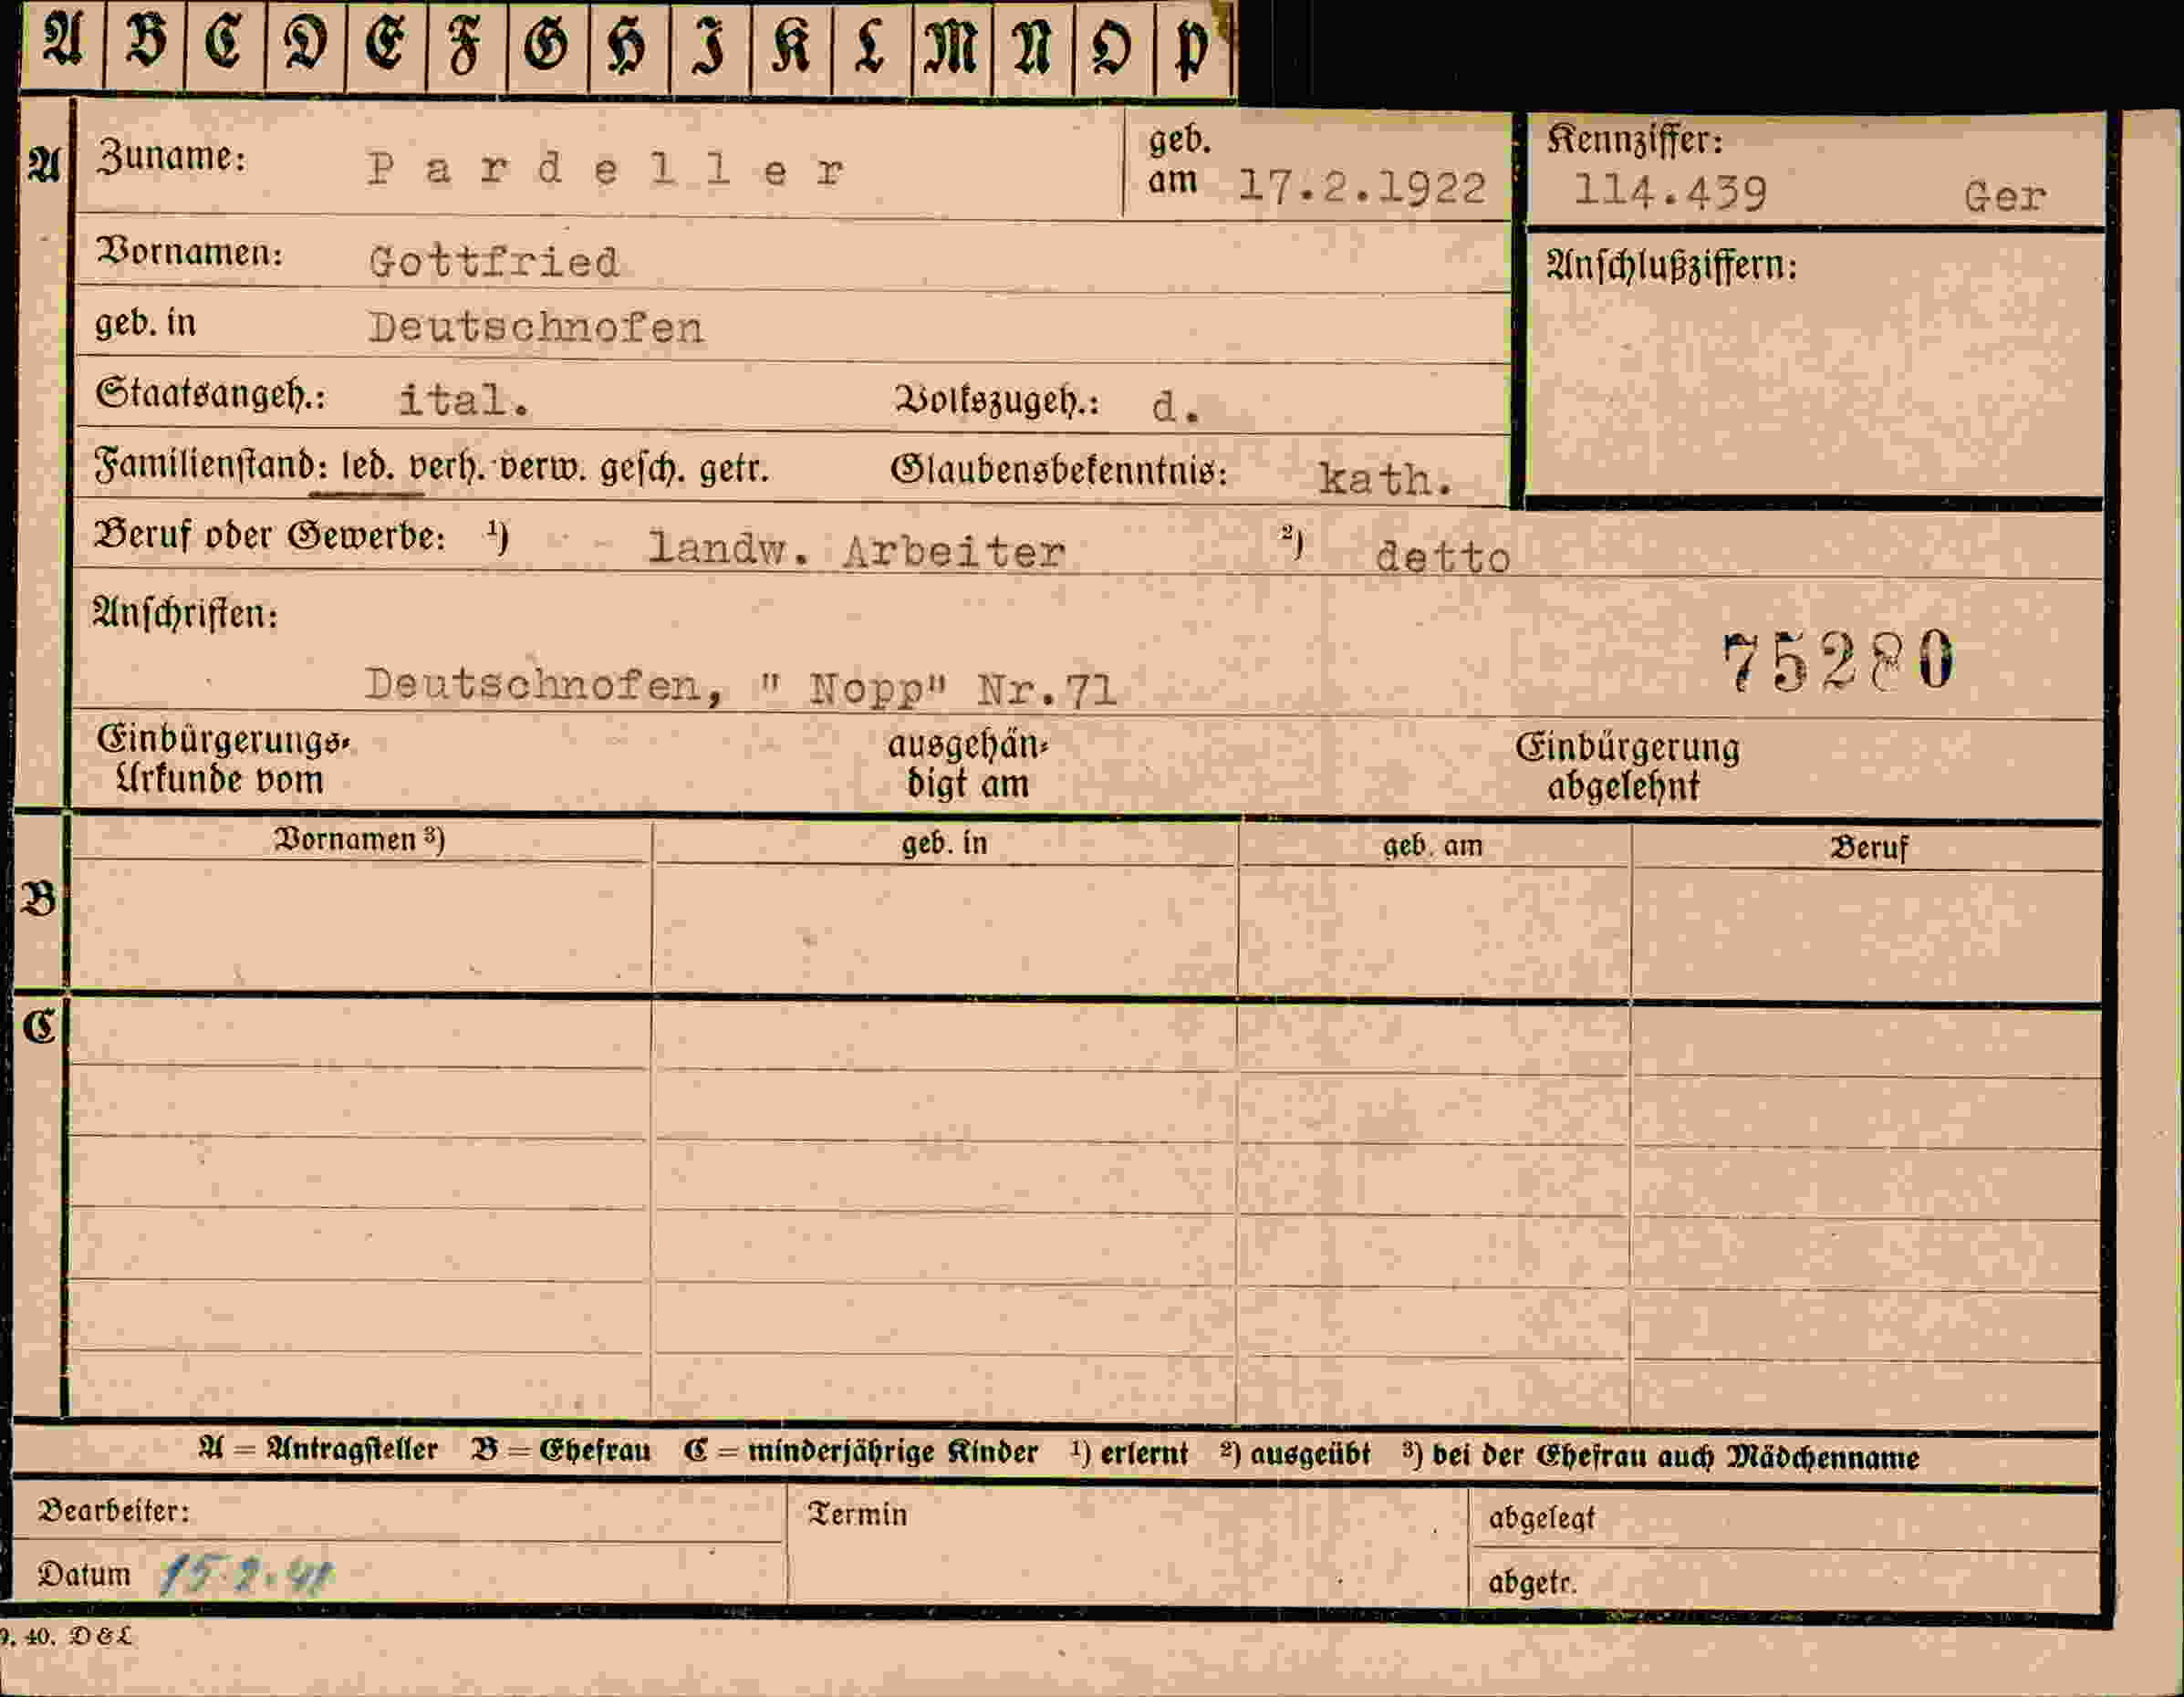 A B C D E F G H I K L M N O P
A Zuname: Pardeller geb. am 17.2.1922 Kennziffer: 114.439 Ger
Vornamen: Gottfried
Anschlußziffern:
geb. in Deutschnofen
Staatsangeh.: ital. Volkszugeh.: d.
Familienstand: led. verh. verw. gesch. getr. Glaubensbekenntnis: kath.
Beruf oder Gewerbe: ¹) landw. Arbeiter ²) detto
Anschriften:
75280
Deutschnofen, " Nopp" Nr.71
Einbürgerungs- ausgehän- Einbürgerung
Urkunde vom digt am abgelehnt
Vornamen ³) geb. in geb. am Beruf
B
C
A = Antragsteller B = Ehefrau C = minderjährige Kinder ¹) erlernt ²) ausgeübt ³) bei der Ehefrau auch Mädchenname
Bearbeiter: Termin abgelegt
Datum 15.2.41 abgetr.
9. 40. D&L